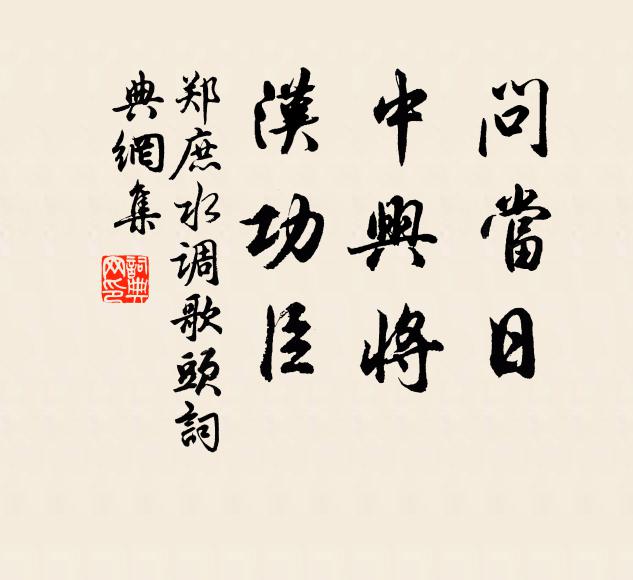 問當日
中興將
漢功臣
郑庶水调歌頭詞
典網集
詞典
网印